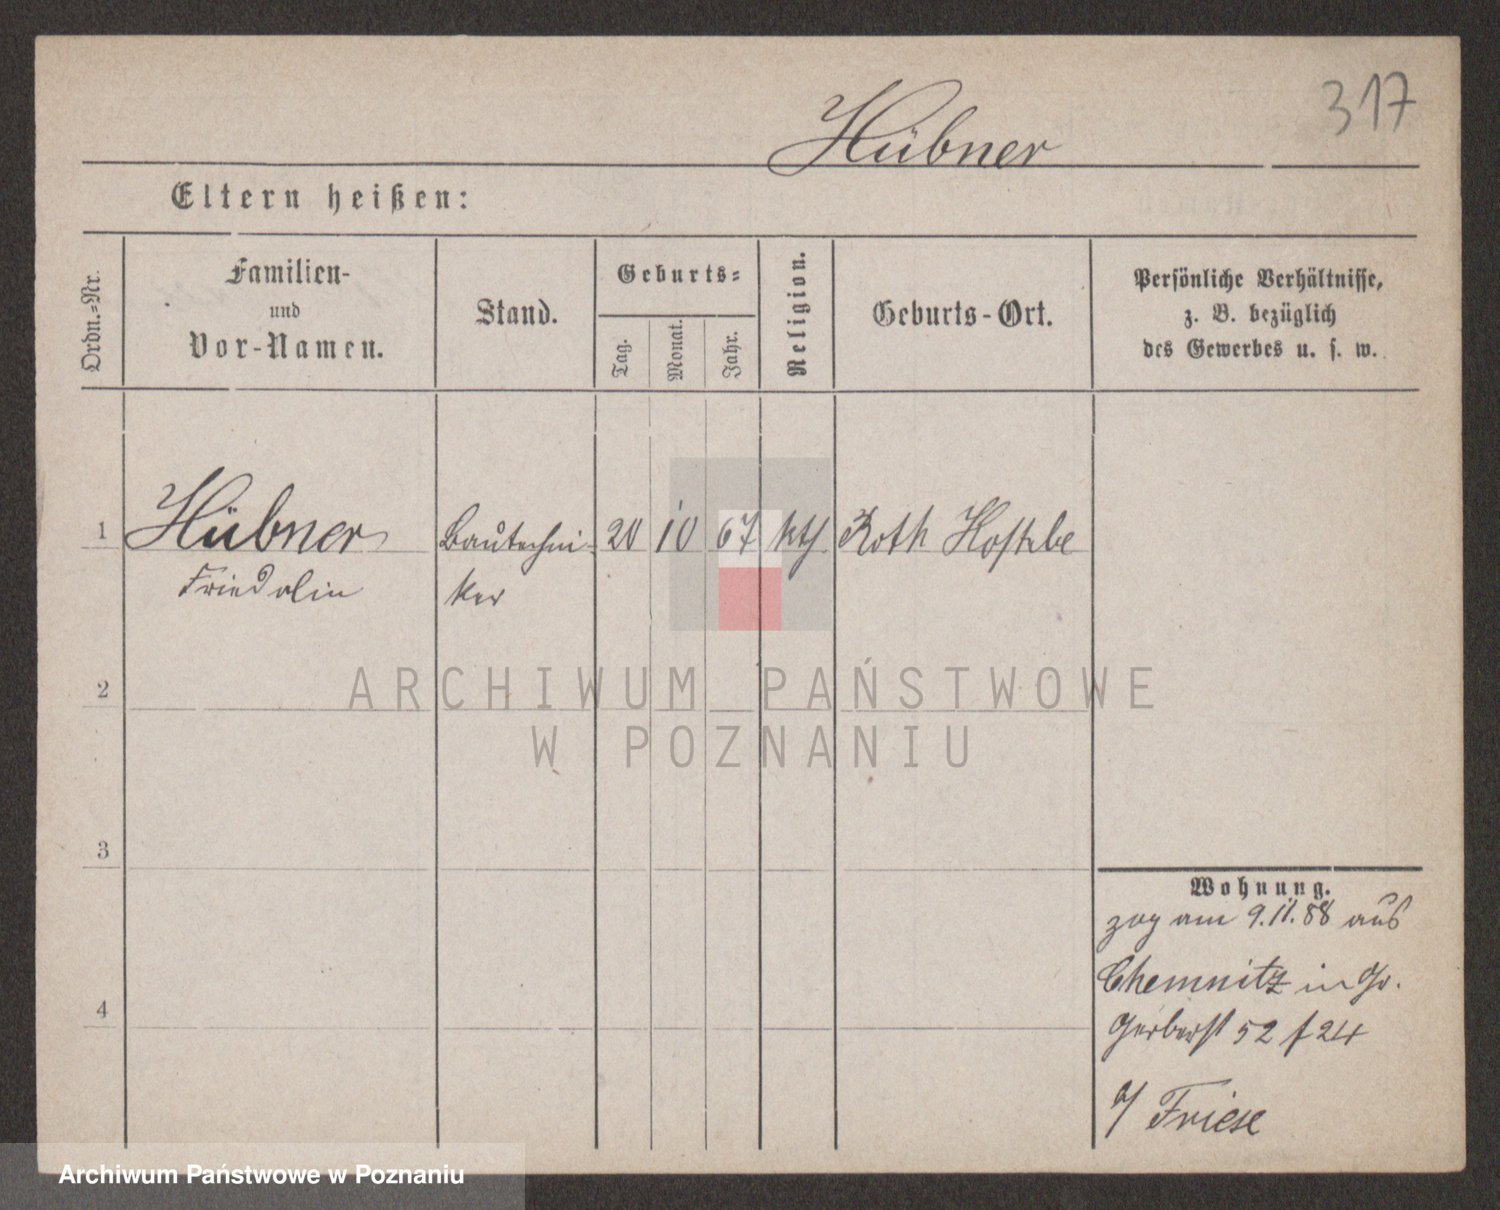 317
Hübner
Eltern heißen:
Ordn.-Nr.
Familien-
und
Vor-Namen.
Stand.
Geburts-
Tag.
Monat.
Jahr.
Religion.
Geburts-Ort.
Persönliche Verhältnisse,
z. B. bezüglich
des Gewerbes u. s. w.
1 Hübner Bautechni- 20 10 67 kth Roth
Friedolin ker
2
ARCHIWUM PAŃSTWOWE
W POZNANIU
3
Wohnung.
zog am 9.11.88 aus
Chemnitz in Gr.
Gerberst 52 f 24
Friese
4
Archiwum Państwowe w Poznaniu